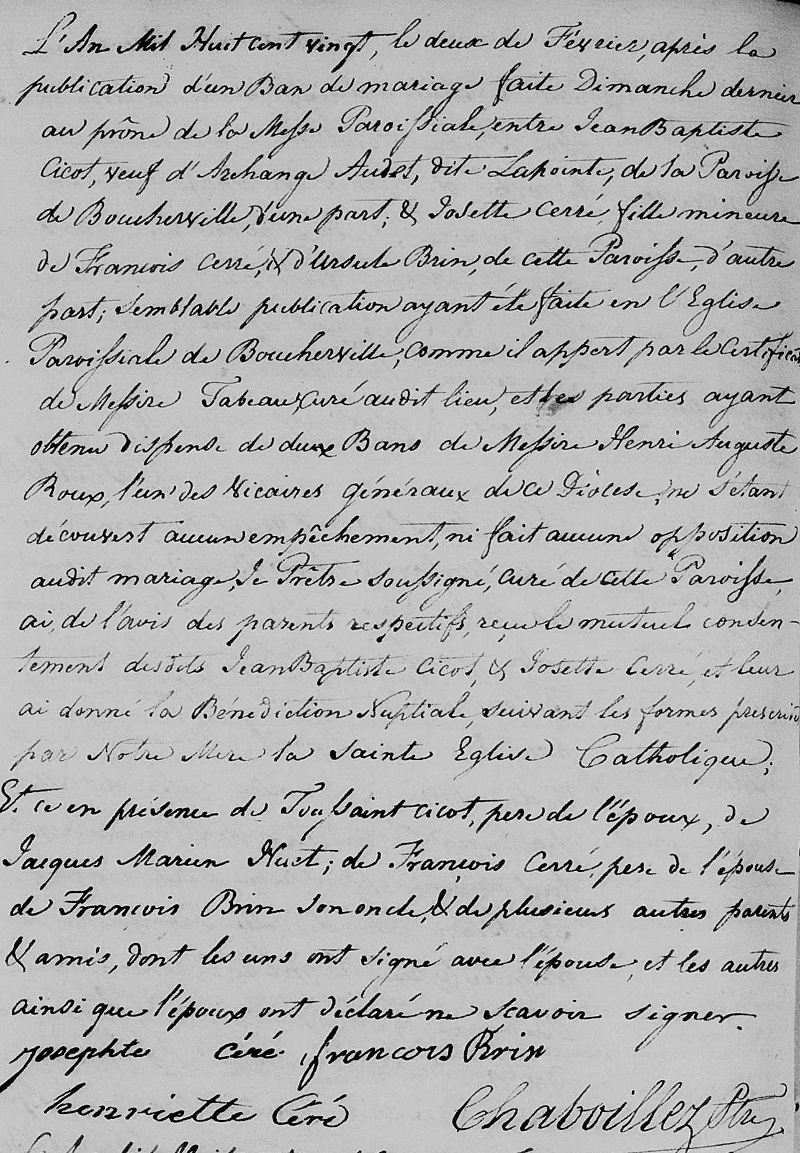 L'An Mil Huit cent vingt, le deux de Février, après la
publication d'un Ban de mariage faite Dimanche dernier
au prône de la Messe Paroissiale, entre Jean Baptiste
Cicot, veuf d'Archange Audet, dite Lapointe, de la Paroisse
de Boucherville, d'une part; & Josette Cerré, fille mineure
de François Cerré, & d'Ursule Brin, de cette Paroisse, d'autre
part; semblable publication ayant été faite en l'Eglise
Paroissiale de Boucherville, comme il appert par le Certificat
de Messire Tabeau, curé audit lieu, et les parties ayant
obtenu dispense de deux Bans de Messire Henri Auguste
Roux, l'un des Vicaires généraux de ce Diocese, ne s'étant
découvert aucun empêchement, ni fait aucune opposition
audit mariage, Je Prêtre soussigné, curé de cette Paroisse,
ai, de l'avis des parents respectifs, reçu le mutuel consen-
tement desdits Jean Baptiste Cicot, & Josette Cerré, et leur
ai donné la Bénédiction Nuptiale, suivant les formes prescrites
par Notre Mere la Sainte Eglise Catholique;
Et ce en présence de Toussaint Cicot, pere de l'époux, de
Jacques Marien Huet; de François Cerré, pere de l'épouse
de François Brin son oncle, & de plusieurs autres parents
& amis, dont les uns ont signé avec l'épouse, et les autres
ainsi que l'époux ont déclaré ne scavoir signer.
Josephte Céré françois Brin
henriette Céré Chaboillez Ptre